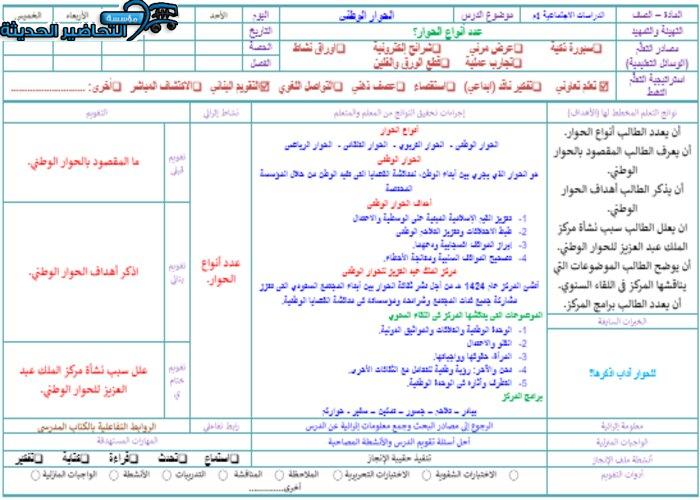 المادة – الصف
الدراسات الاجتماعية
موضوع الدرس
الحوار الوطني
اليوم
الأحد
الأربعاء
الخميس
مؤسسة
التحاضير الحديثة
التهيئة والتمهيد
عدد أنواع الحوار؟
التاريخ
مصادر التعلم
(الوسائل التعليمية)
سبورة ذكية
عرض مرئي
شرائح إلكترونية
أوراق نشاط
تجارب عملية
قطع الورق والفلين
الحصة
الفصل
استراتيجية التعلم
النشط
تعلم تعاوني
تفكير ناقد (ابداعي)
استقصاء
عصف ذهني
التواصل اللغوي
التقويم البنائي
الاكتشاف المباشر
أخرى:
نواتج التعلم المخطط لها (الأهداف)
إجراءات تحقيق النواتج من المعلم والمتعلم
نشاط إثرائي
التقويم
أن يعدد الطالب أنواع الحوار.
أن يعرف الطالب المقصود بالحوار
الوطني.
أن يذكر الطالب أهداف الحوار
الوطني.
ان يعلل الطالب سبب نشأة مركز
الملك عبد العزيز للحوار الوطني.
أن يوضح الطالب الموضوعات التي
يناقشها المركز في اللقاء السنوي.
أن يعدد الطالب برامج المركز.
الخبرات السابقة
للحوار آداب اذكرها؟
أنواع الحوار
الحوار الوطني - الحوار التربوي - الحوار الثقافي - الحوار الرياضي
الحوار الوطني
هو الحوار الذي يجري بين أبناء الوطن، لمناقشة القضايا التي تفيد الوطن من خلال المؤسسة
المختصة
أهداف الحوار الوطني
1- تعزيز القيم الإسلامية المبنية على الوسطية والاعتدال
2- ضبط الاختلافات وتعزيز التلاحم الوطني
3- إبراز المواقف السجابية ودعمها.
4- تصحيح المواقف السلبية ومعالجة الأخطاء.
مركز الملك عبد العزيز للحوار الوطني
أنشئ المركز عام 1424 هـ من أجل نشر ثقافة الحوار بين أبناء المجتمع السعودي التي تعزز
مشاركة جميع فئات المجتمع وشرائحه ومؤسساته في مناقشة القضايا الوطنية.
الموضوعات التي يناقشها المركز في اللقاء السنوي
1- الوحدة الوطنية والعلاقات والمواثيق الدولية.
2- الغلو والاعتدال
3- المرأة، حقوقها وواجباتها.
4- نحن والآخر: رؤية وطنية للتعامل مع الثقافات الأخرى.
5- التطرف وآثاره في الوحدة الوطنية.
برامج المركز
بيادر – تلاحم – جسور – تمكين – سفير - حواركم
عدد أنواع
الحوار.
تقويم
قبلي
ما المقصود بالحوار الوطني.
تقويم
بنائي
اذكر أهداف الحوار الوطني.
تقويم
ختام
ي
علل سبب نشأة مركز الملك عبد
العزيز للحوار الوطني.
معلومة إثرائية
الرجوع إلى مصادر البحث وجمع معلومات إثرائية عن الدرس
رابط تفاعلي
الروابط التفاعلية بالكتاب المدرسي
الواجبات المنزلية
أحل أسئلة تقويم الدرس والأنشطة المصاحبة
المهارات المستهدفة
أنشطة ملف الإنجاز
تنفيذ حقيبة الإنجاز
استماع
تحدث
قراءة
كتابة
تفكير
أدوات التقويم
الاختبارات الشفوية
الاختبارات التحريرية
الملاحظة
المناقشة
التدريبات
الأنشطة
الواجبات المنزلية
أخرى